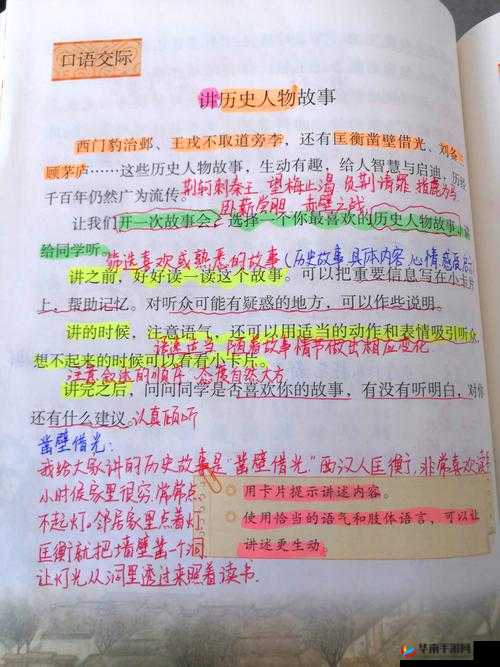 口语交际
讲历史人物故事
西门豹治邺、王戎不取道旁李，还有匡衡凿壁借光、刘备三
顾茅庐……这些历史人物故事，生动有趣，给人智慧与启迪，历经
千百年仍然广为流传。
荆轲刺秦王 望梅止渴 负荆请罪 指鹿为马
卧薪尝胆 赤壁之战
让我们开一次故事会，选择一个你最喜欢的历史人物故事
给同学听。
筛选喜欢或熟悉的故事（历史故事 具体内容 心情感反
讲之前，好好读一读这个故事。可以把重要信息写在小卡片
上，帮助记忆。对听众可能有疑惑的地方，可以作些说明。
讲的时候，注意语气，还可以用适当的动作和表情吸引听众，
语速适当 随着故事情节做出相应变化
想不起来的时候可以看看小卡片。
注意叙述的顺序 态度自然大方
讲完之后，问问同学是否喜欢你的故事，有没有听明白，对你
还有什么建议。认真倾听
凿壁借光：
我给大家讲的历史故事是“凿壁借光”西汉人匡衡，非常喜欢读书
小时候家里很穷，常常点
不起灯。邻居家里点着灯
匡衡就把墙壁凿一个洞
让灯光从洞里透过来照着读书.
用卡片提示讲述内容。
使用恰当的语气和肢体语言，可以让
讲述更生动。
华南手游网